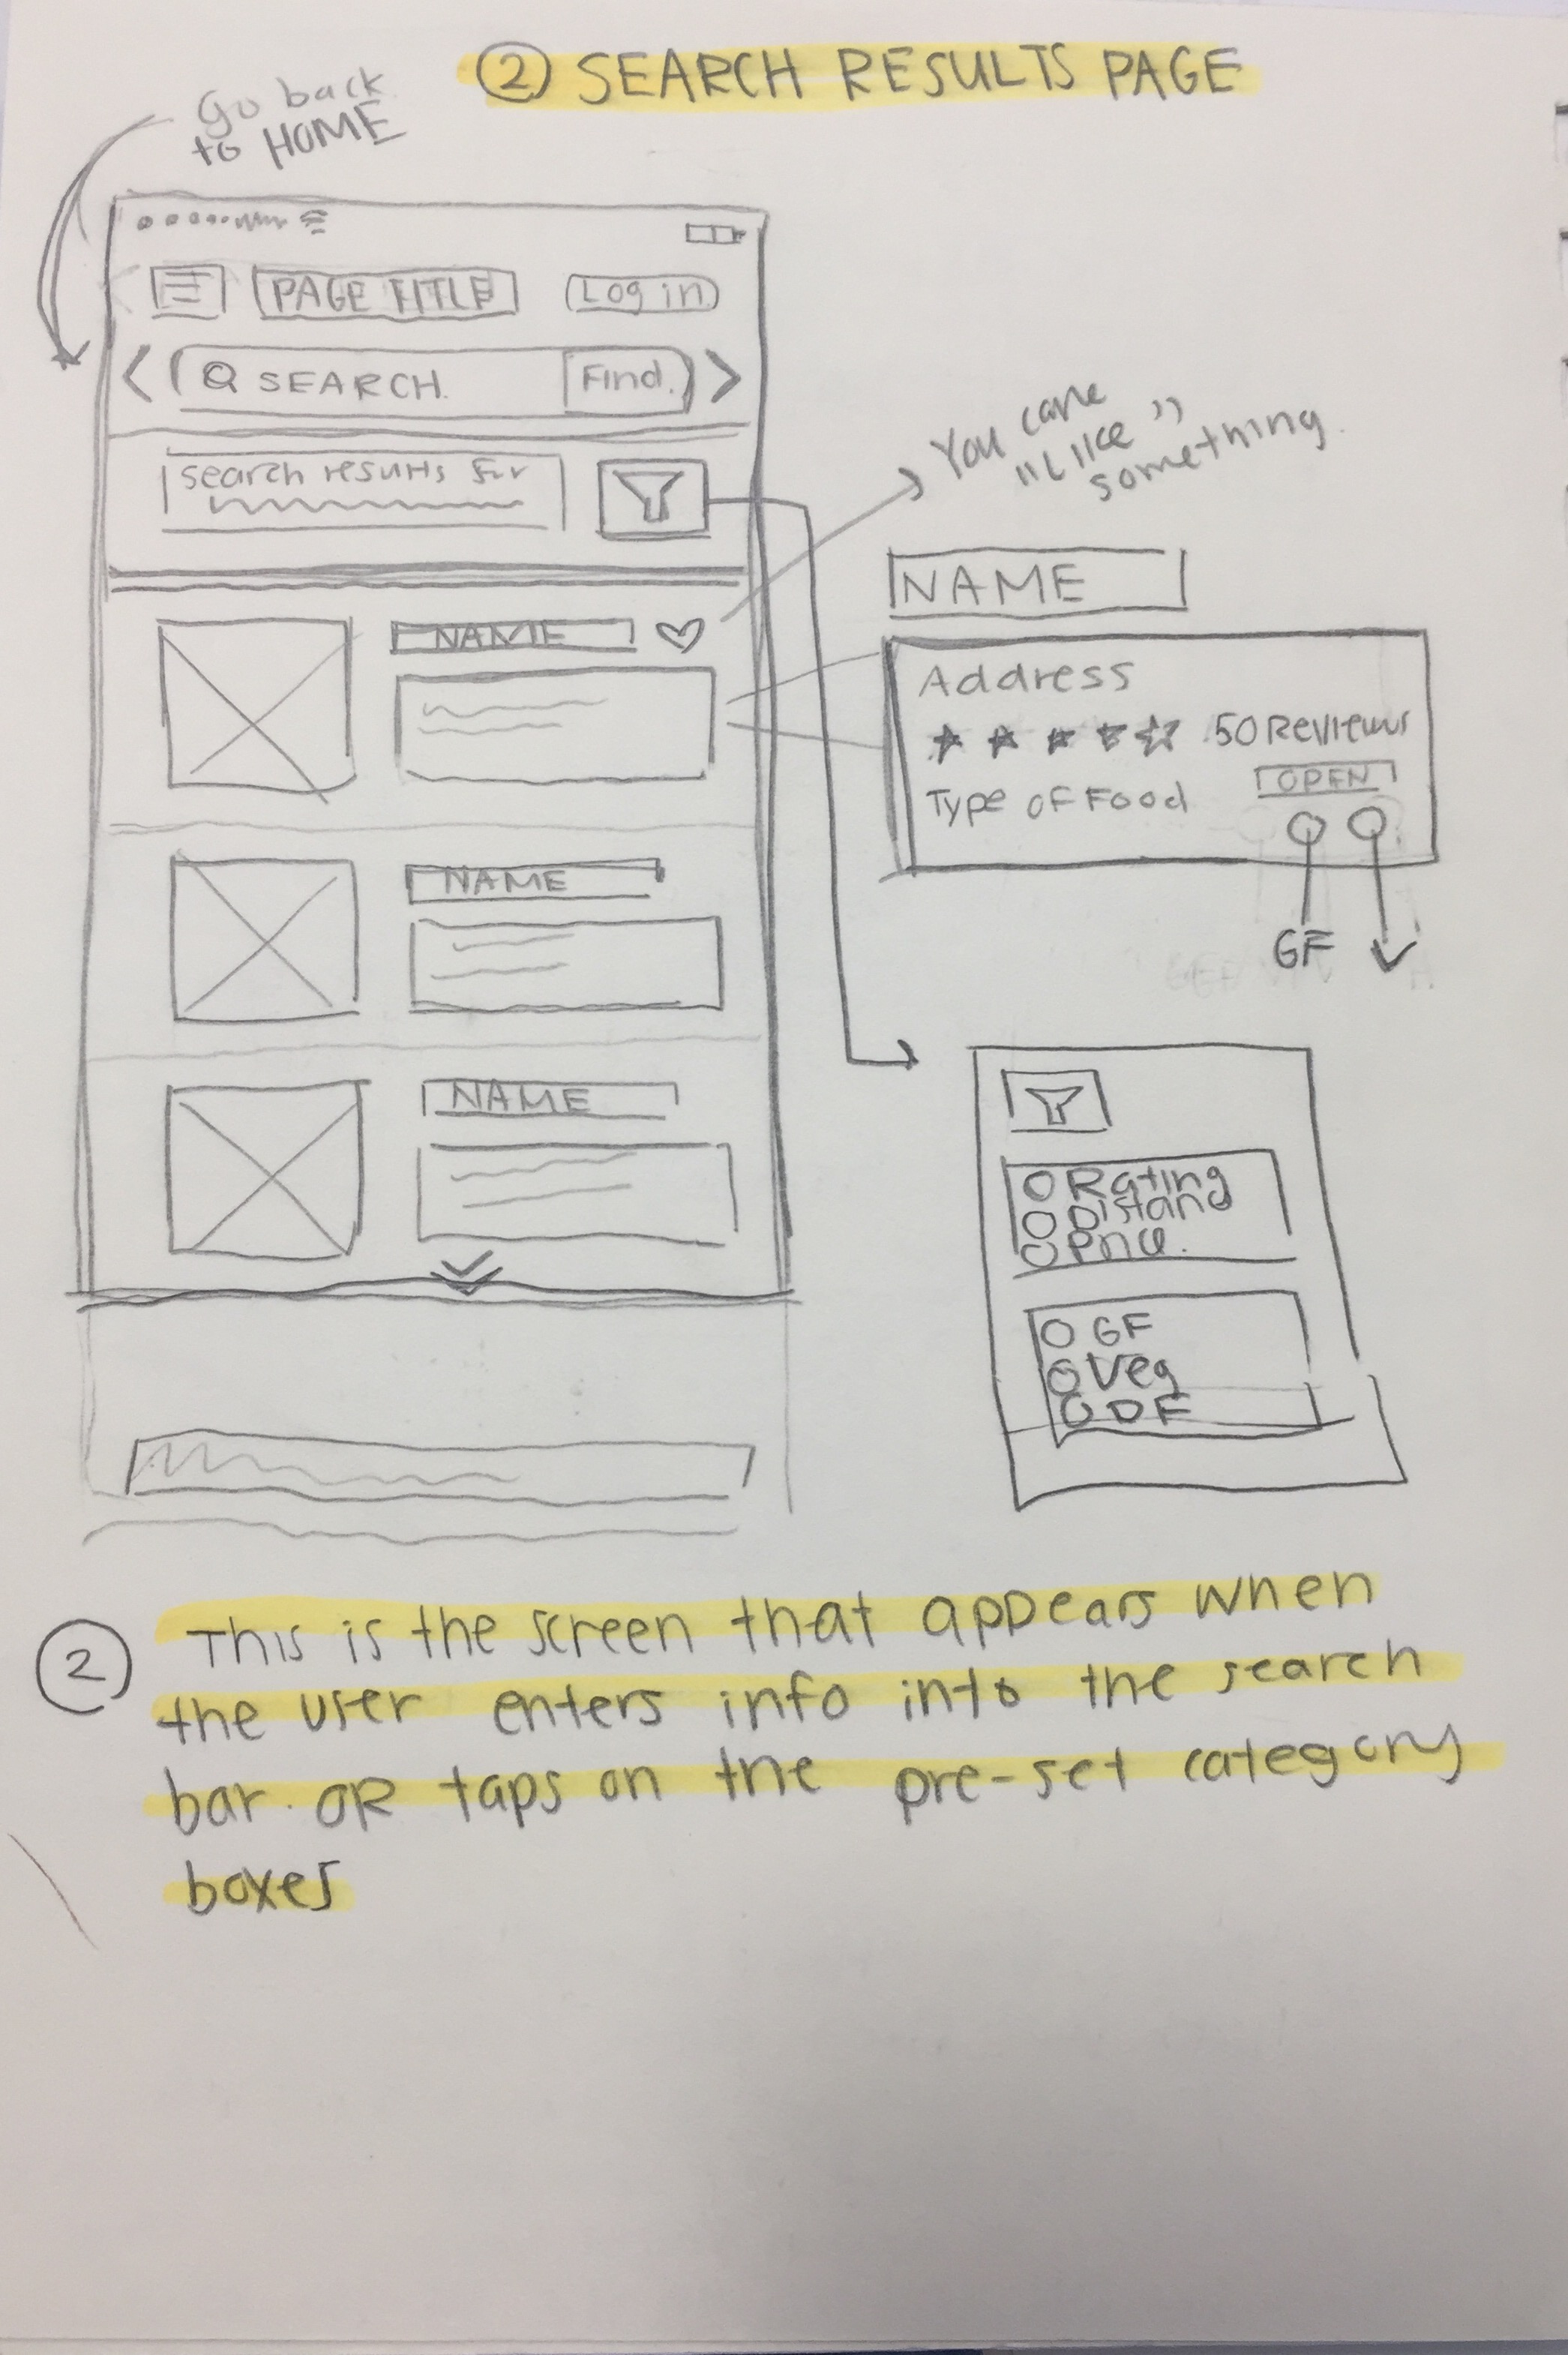 ② SEARCH RESULTS PAGE
Go back
to HOME
PAGE TITLE
Log in
SEARCH.
Find.
search results for
You cane
"Like"
something.
NAME
NAME
Address
50 Reviews
Type of Food
OPEN
GF
V
NAME
NAME
Rating
Distang
Price.
GF
Veg
DF
② This is the screen that appears when
the user enters info into the search
bar. OR taps on the pre-set category
boxes